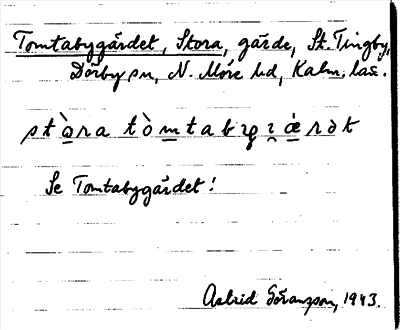 Tomtabygärdet, Stora, gärde, St. Tingby,
Dörby sn, N. Möre hd, Kalm. län.
stò̱ra tò̱mtabyg̯ı̯æ̱̀rdt
Se Tomtabygärdet!
Astrid Göransson, 1943.